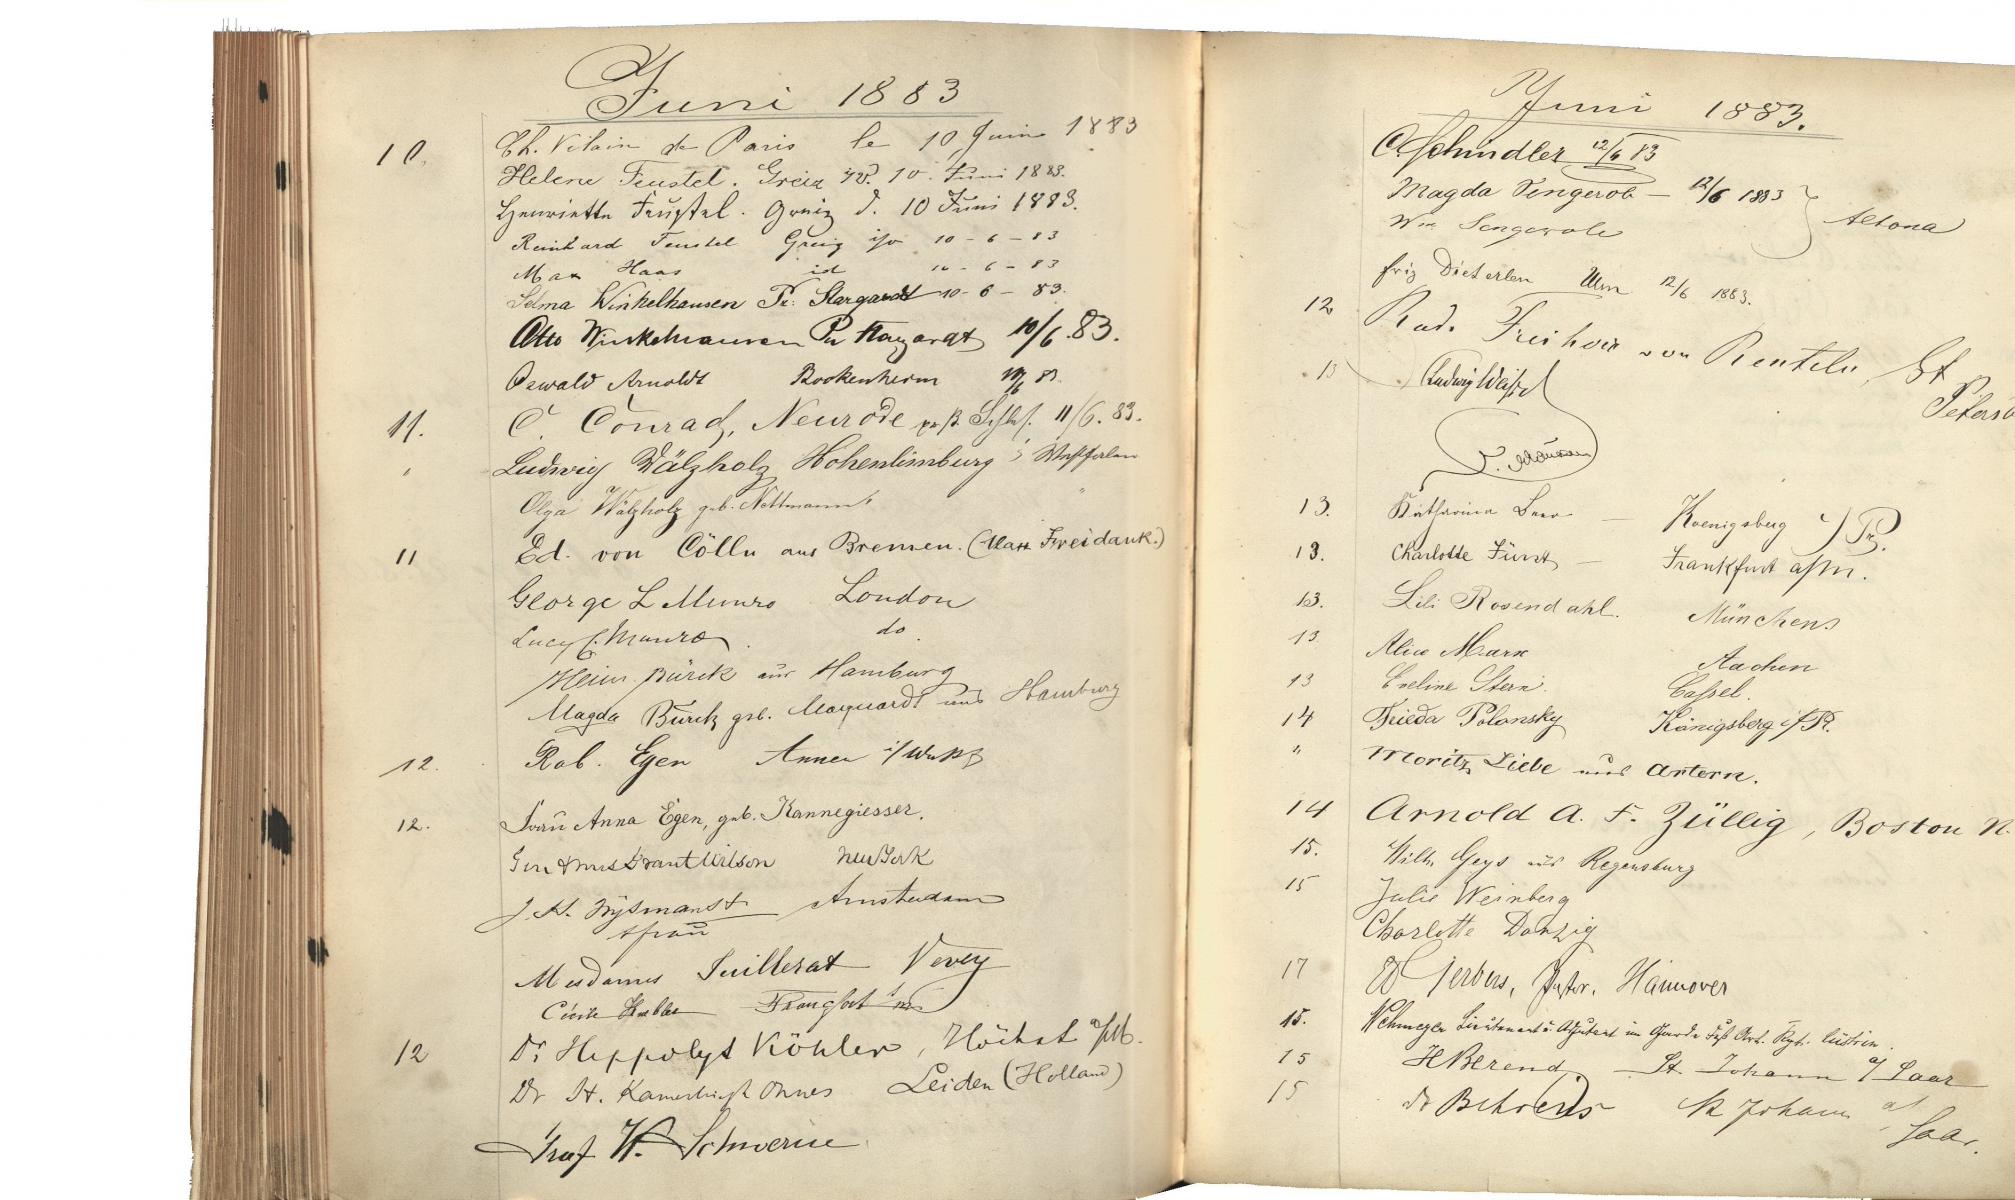 Juni 1883
10. Ch. Vilain de Paris le 10 Juin 1883
Helene Feustel. Greiz 10. Juni 1883.
Henriette Feustel. Greiz d. 10 Juni 1883.
Reinhard Feustel Greiz 10-6-83
Max Haas id 10-6-83
Selma Winkelhausen Pr. Stargardt 10-6-83.
Otto Winkelhausen Pr Stargardt 10/6.83.
Oswald Arnoldt Bockenheim
11. C. Conrad, Neurode 11/6.83.
Ludwig Wälzholz Hohenlimburg i Westfalen
Olga Wälzholz geb. Nettmann "
11 Ed. von Cölln aus Bremen. (Freidank.)
George L Munro London
Lucy C. Munro do.
Heinr. Bürck aus Hamburg
Magda Bürck geb. Maquardt aus Hamburg
12. Rob. Egen Annen i/Westf
12. Frau Anna Egen, geb. Kannegiesser.
Gen & Mrs Grant Wilson New York
Amsterdam
& frau
Mesdames Juillerat Vevey
Cécile
12 Dr. Hippolyt Köhler, Höchst a/M.
Dr H. Kamerlingh Onnes Leiden (Holland)
Graf W. Schwerin
Juni 1883.
C. Schindler 12/6 83
Magda Sengerob - 12/6 1883
Altona
Wm
Dieterlen Ulm 12/6 1883.
12 Rud. Freiherr von Renteln, St
Petersb
13
13. Katharina Koenigsberg i/Pr.
13. Charlotte Fürst - Frankfurt a/M.
13. Lili Rosendahl. München
13 Alice Marx Aachen
13 Eveline Stern. Cassel.
14 Frieda Polansky Königsberg i/Pr.
" Moritz Liebe aus Artern.
14 Arnold A. F. Züllig, Boston N.
15. Wilh. Geys aus Regensburg
15 Julie Weinberg
Charlotte Danzig
17 Gerbers, Pastor, Hannover
15. Wehmeyer Lieutenant u. Adjutant im Garde Fuß Art. Rgt. Cüstrin.
15 H Berend - St. Johann a/ Saar
15 Dr Behrens St Johann a/
Saar.